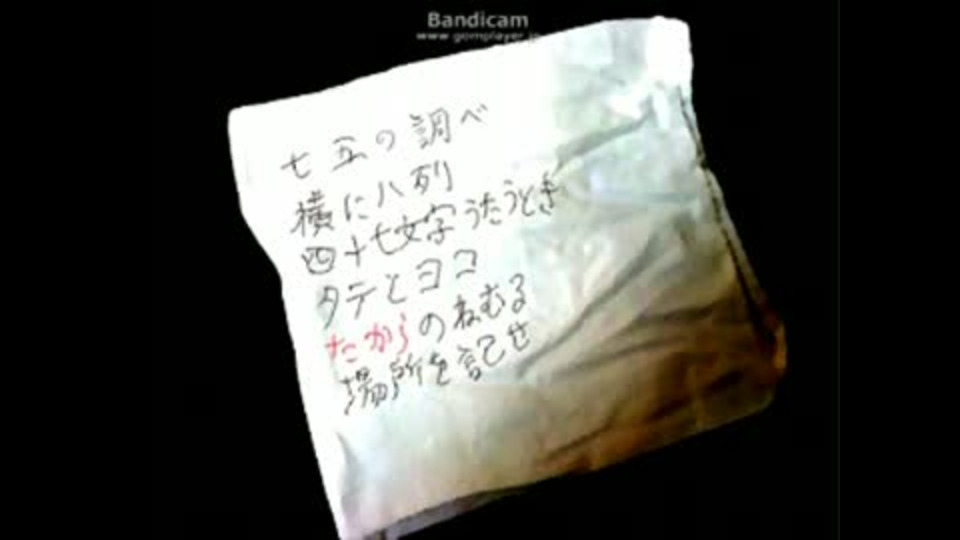 Bandicam
www.gomplayer.jp
七五の調べ
横に八列
四十七文字うたうとき
タテとヨコ
たからのねむる
場所を記せ